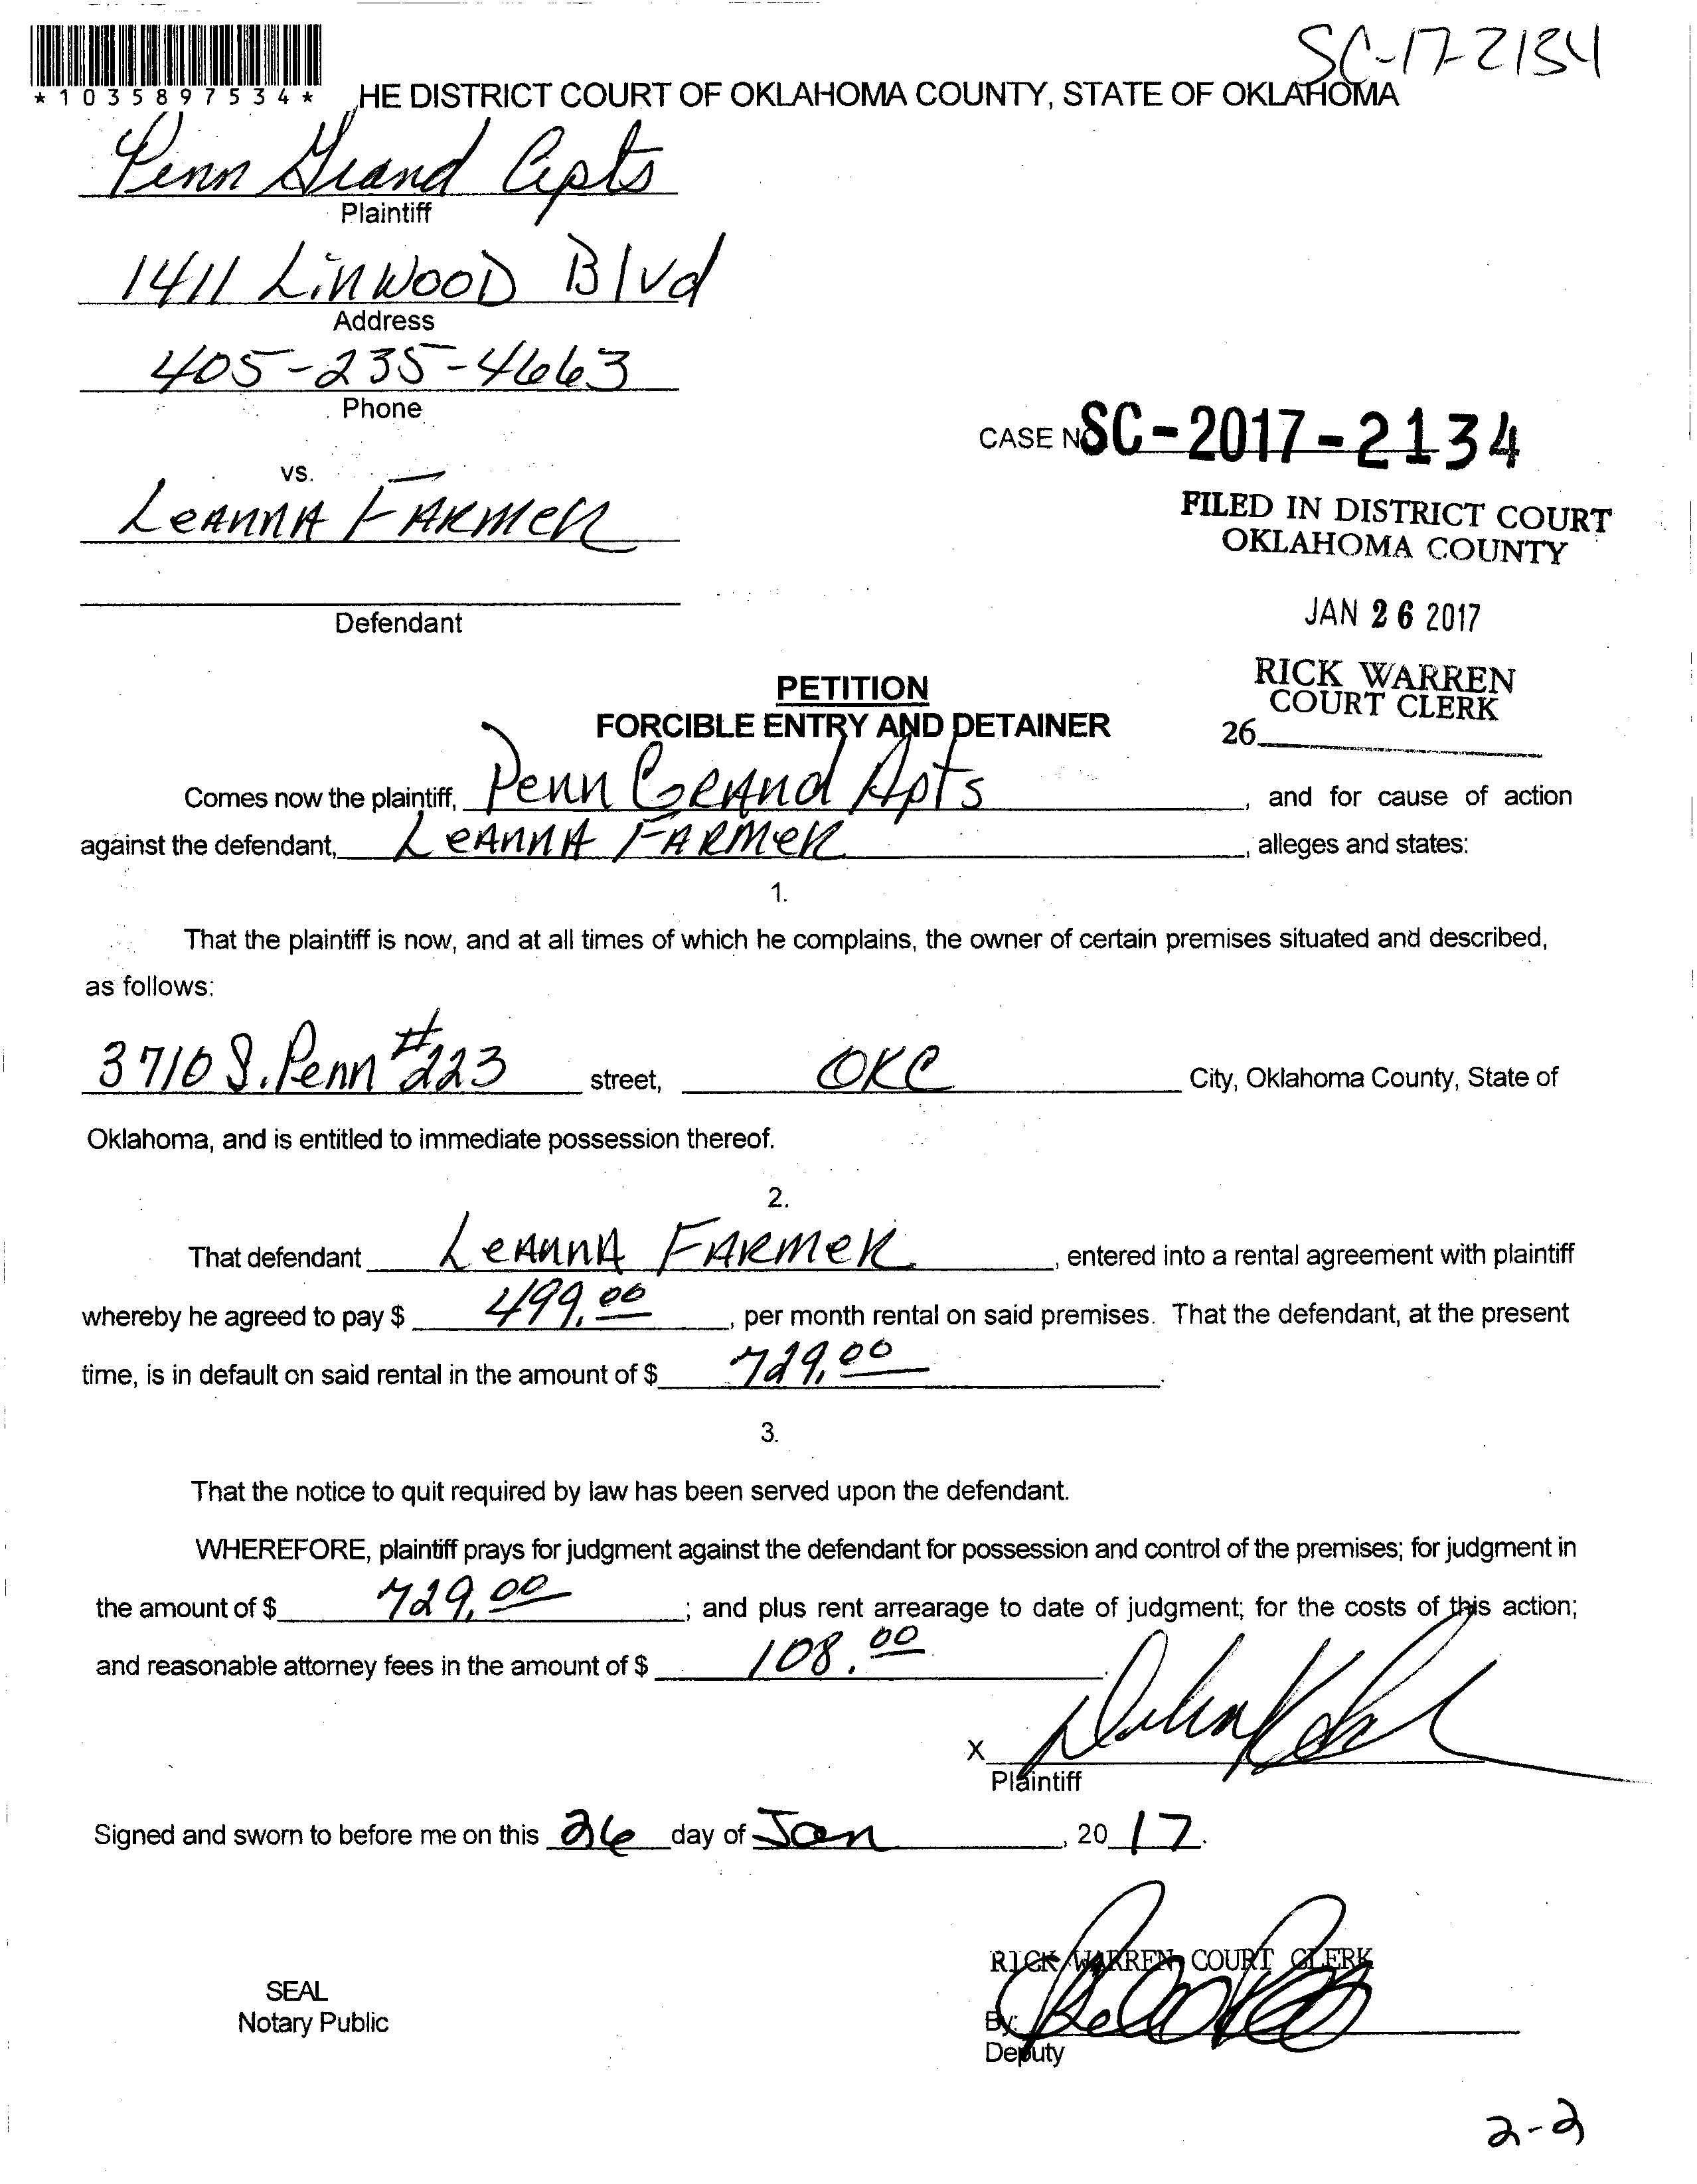 SC-17-2134
*1035897534*
HE DISTRICT COURT OF OKLAHOMA COUNTY, STATE OF OKLAHOMA
Penn Grand Apts
Plaintiff
1411 Linwood Blvd
Address
405-235-4663
Phone
CASE NO SC-2017-2134
vs.
LeAnnA FARMeR
FILED IN DISTRICT COURT
OKLAHOMA COUNTY
Defendant
JAN 26 2017
RICK WARREN
COURT CLERK
26
PETITION
FORCIBLE ENTRY AND DETAINER
Comes now the plaintiff, Penn GRAnd Apts, and for cause of action
against the defendant, LeAnnA FARMeR, alleges and states:
1.
That the plaintiff is now, and at all times of which he complains, the owner of certain premises situated and described,
as follows:
3710 S. Penn #223 street, OKC City, Oklahoma County, State of
Oklahoma, and is entitled to immediate possession thereof.
2.
That defendant LeAnnA FARMeR, entered into a rental agreement with plaintiff
whereby he agreed to pay $ 499.00, per month rental on said premises. That the defendant, at the present
time, is in default on said rental in the amount of $ 729.00.
3.
That the notice to quit required by law has been served upon the defendant.
WHEREFORE, plaintiff prays for judgment against the defendant for possession and control of the premises; for judgment in
the amount of $ 729.00; and plus rent arrearage to date of judgment; for the costs of this action;
and reasonable attorney fees in the amount of $ 108.00.
X
Plaintiff
Signed and sworn to before me on this 26 day of Jan, 2017.
RICK WARREN COURT CLERK
SEAL
Notary Public
By:
Deputy
2-2